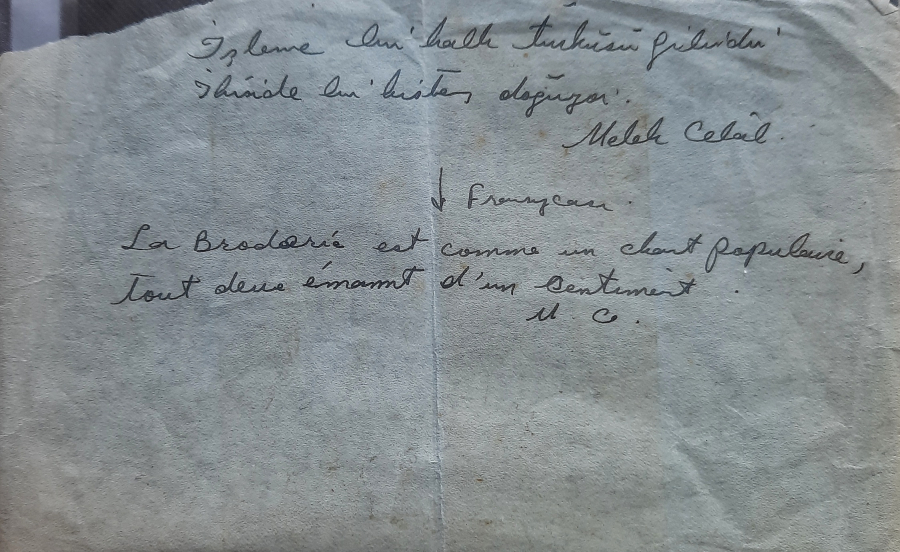 İşleme bir halk türküsü gibidir
İkiside bir histen doğuyor.
Melek Celâl.
↓ Fransızcası.
La Broderie est comme un chant populaire,
Tout deux émannt d'un Sentiment.
M. C.